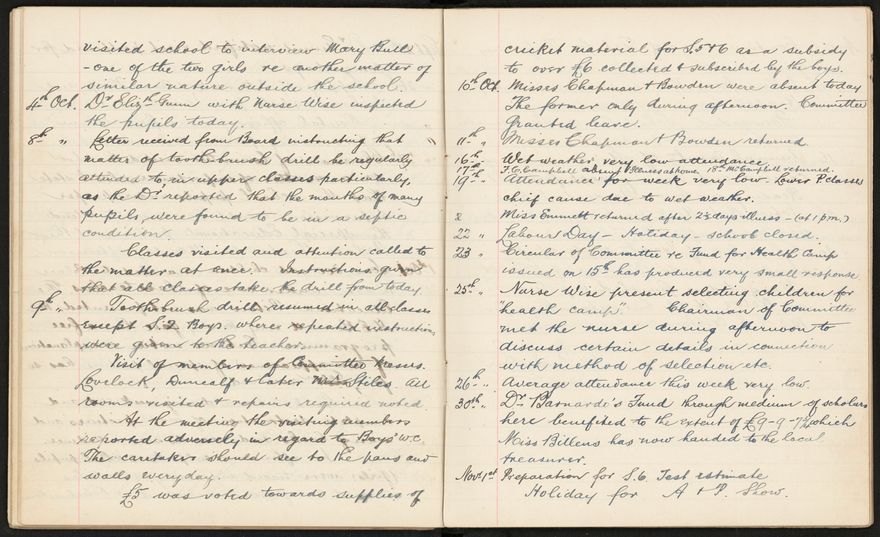 visited school to interview Mary Bull
- one of the two girls re another matter of
similar nature outside the school.
4th Oct. Dr Elizth Gunn with Nurse Wise inspected
the pupils today.
8th " Letter received from Board instructing that
matter of tooth-brush drill be regularly
attended to in upper classes particularly,
as the Dr reported that the mouths of many
pupils were found to be in a septic
condition.
Classes visited and attention called to
the matter at once. Instructions given
that all classes take the drill from today.
9th " Toothbrush drill resumed in all classes
except S.2 Boys. where repeated instructions
were given to the teacher.
Visit of members of Committee Messrs.
Lovelock, Duncalf & later Miss Stiles. All
rooms visited & repairs required noted
At the meeting the visiting members
reported adversely in regard to Boys' W.C.
The caretaker should see to the pans and
walls everyday.
£5 was voted towards supplies of
cricket material for S.5 & 6 as a subsidy
to over £6 collected & subscribed by the boys.
10th Oct. Misses Chapman & Bowden were absent today
The former only during afternoon. Committee
granted leave.
11th " Misses Chapman & Bowden returned.
16th " Wet weather very low attendance
17th " F.C. Campbell absent illness at home. 18th McCampbell returned.
19th " Attendance for week very low. Lower P. classes
chief cause due to wet weather.
Miss Emmett returned after 2½ days illness - (at 1 p.m.)
22 " Labour Day - Holiday - school closed.
23 " Circular of Committee re Fund for Health Camp
issued on 15th has produced very small response
25th " Nurse Wise present selecting children for
"health camp". Chairman of Committee
met the nurse during afternoon to
discuss certain details in connection
with method of selection etc.
26th " Average attendance this week very low.
30th " Dr Barnardo's Fund through medium of scholars
here benefited to the extent of £9-9- which
Miss Billens has now handed to the local
treasurer.
Nov. 1st Preparation for S.6 Test estimate
Holiday for A & P. Show.